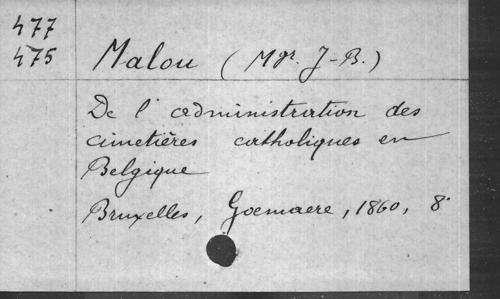 477
475
Malou (Mgr. J-B.)
De l'administration des
cimetières catholiques en
Belgique
Bruxelles, Goemaere, 1860, 8°